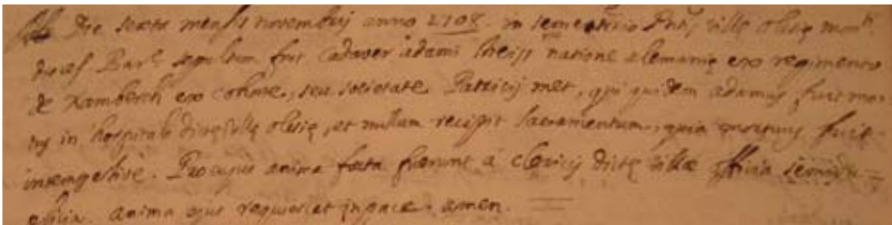 Die sexta mensis novembrij anno 1708. in sementirio Pntis ville olesie mont.
dioces Barc. sepultum fuit cadaver adami theiss natione alemanie ex regimento
de Xamberch ex cohorte, seu societate Patricij met, qui quidem adamus fuit mor
tus in hospitale dicte ville olesie, et nullum recipit sacramentum, quia mortuus fuit
. Pro cujus anima facta fuerunt a clericis dicte ville officia
. anima ejus requiescat in pace. amen.